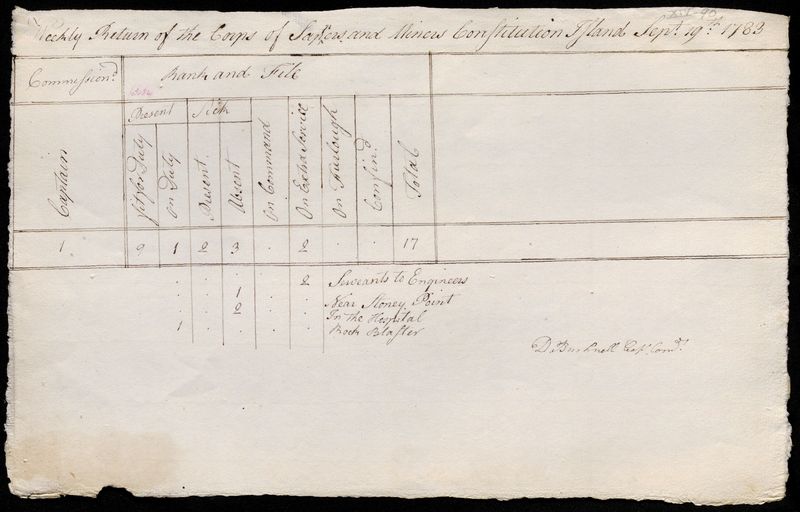 Weekly Return of the Corps of Sapers and Miners Constitution Island Sept. 19th. 1783
Commissiond. Rank and File
Present Sick
Captain fit for Duty on Duty Present Absent On Command On Extra Service On Furlough Confind. Total
1 9 1 2 3 . 2 . . 17
. . . . 2 Serveants to Engineers
. . 1 . . Near Stoney Point
. . 2 . . In the Hospital
1 . . . . Rock Blaster
D. Bushnell Capt. Comdt.